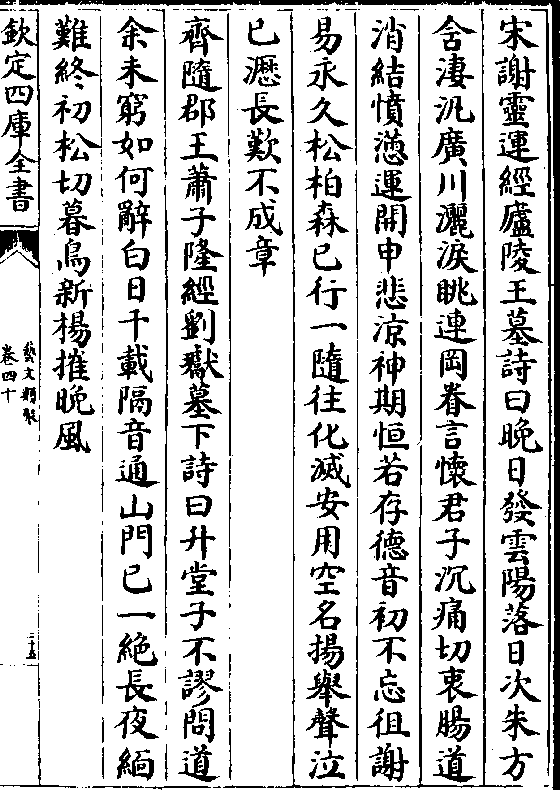 宋謝靈運經廬陵王墓詩曰晚日發雲陽落日次朱方
含淒汎廣川灑淚眺連岡眷言懷君子沉痛切衷腸道
消結憤懣運開申悲涼神期恒若存德音初不忘徂謝
易永久松柏森已行一隨往化滅安用空名揚舉聲泣
已瀝長歎不成章
齊隨郡王蕭子隆經劉瓛墓下詩曰升堂子不謬問道
余未窮如何辭白日千載隔音通山門已一絶長夜緬
難終初松切暮鳥新楊摧晚風
欽定四庫全書
藝文類聚
卷四十
二十五